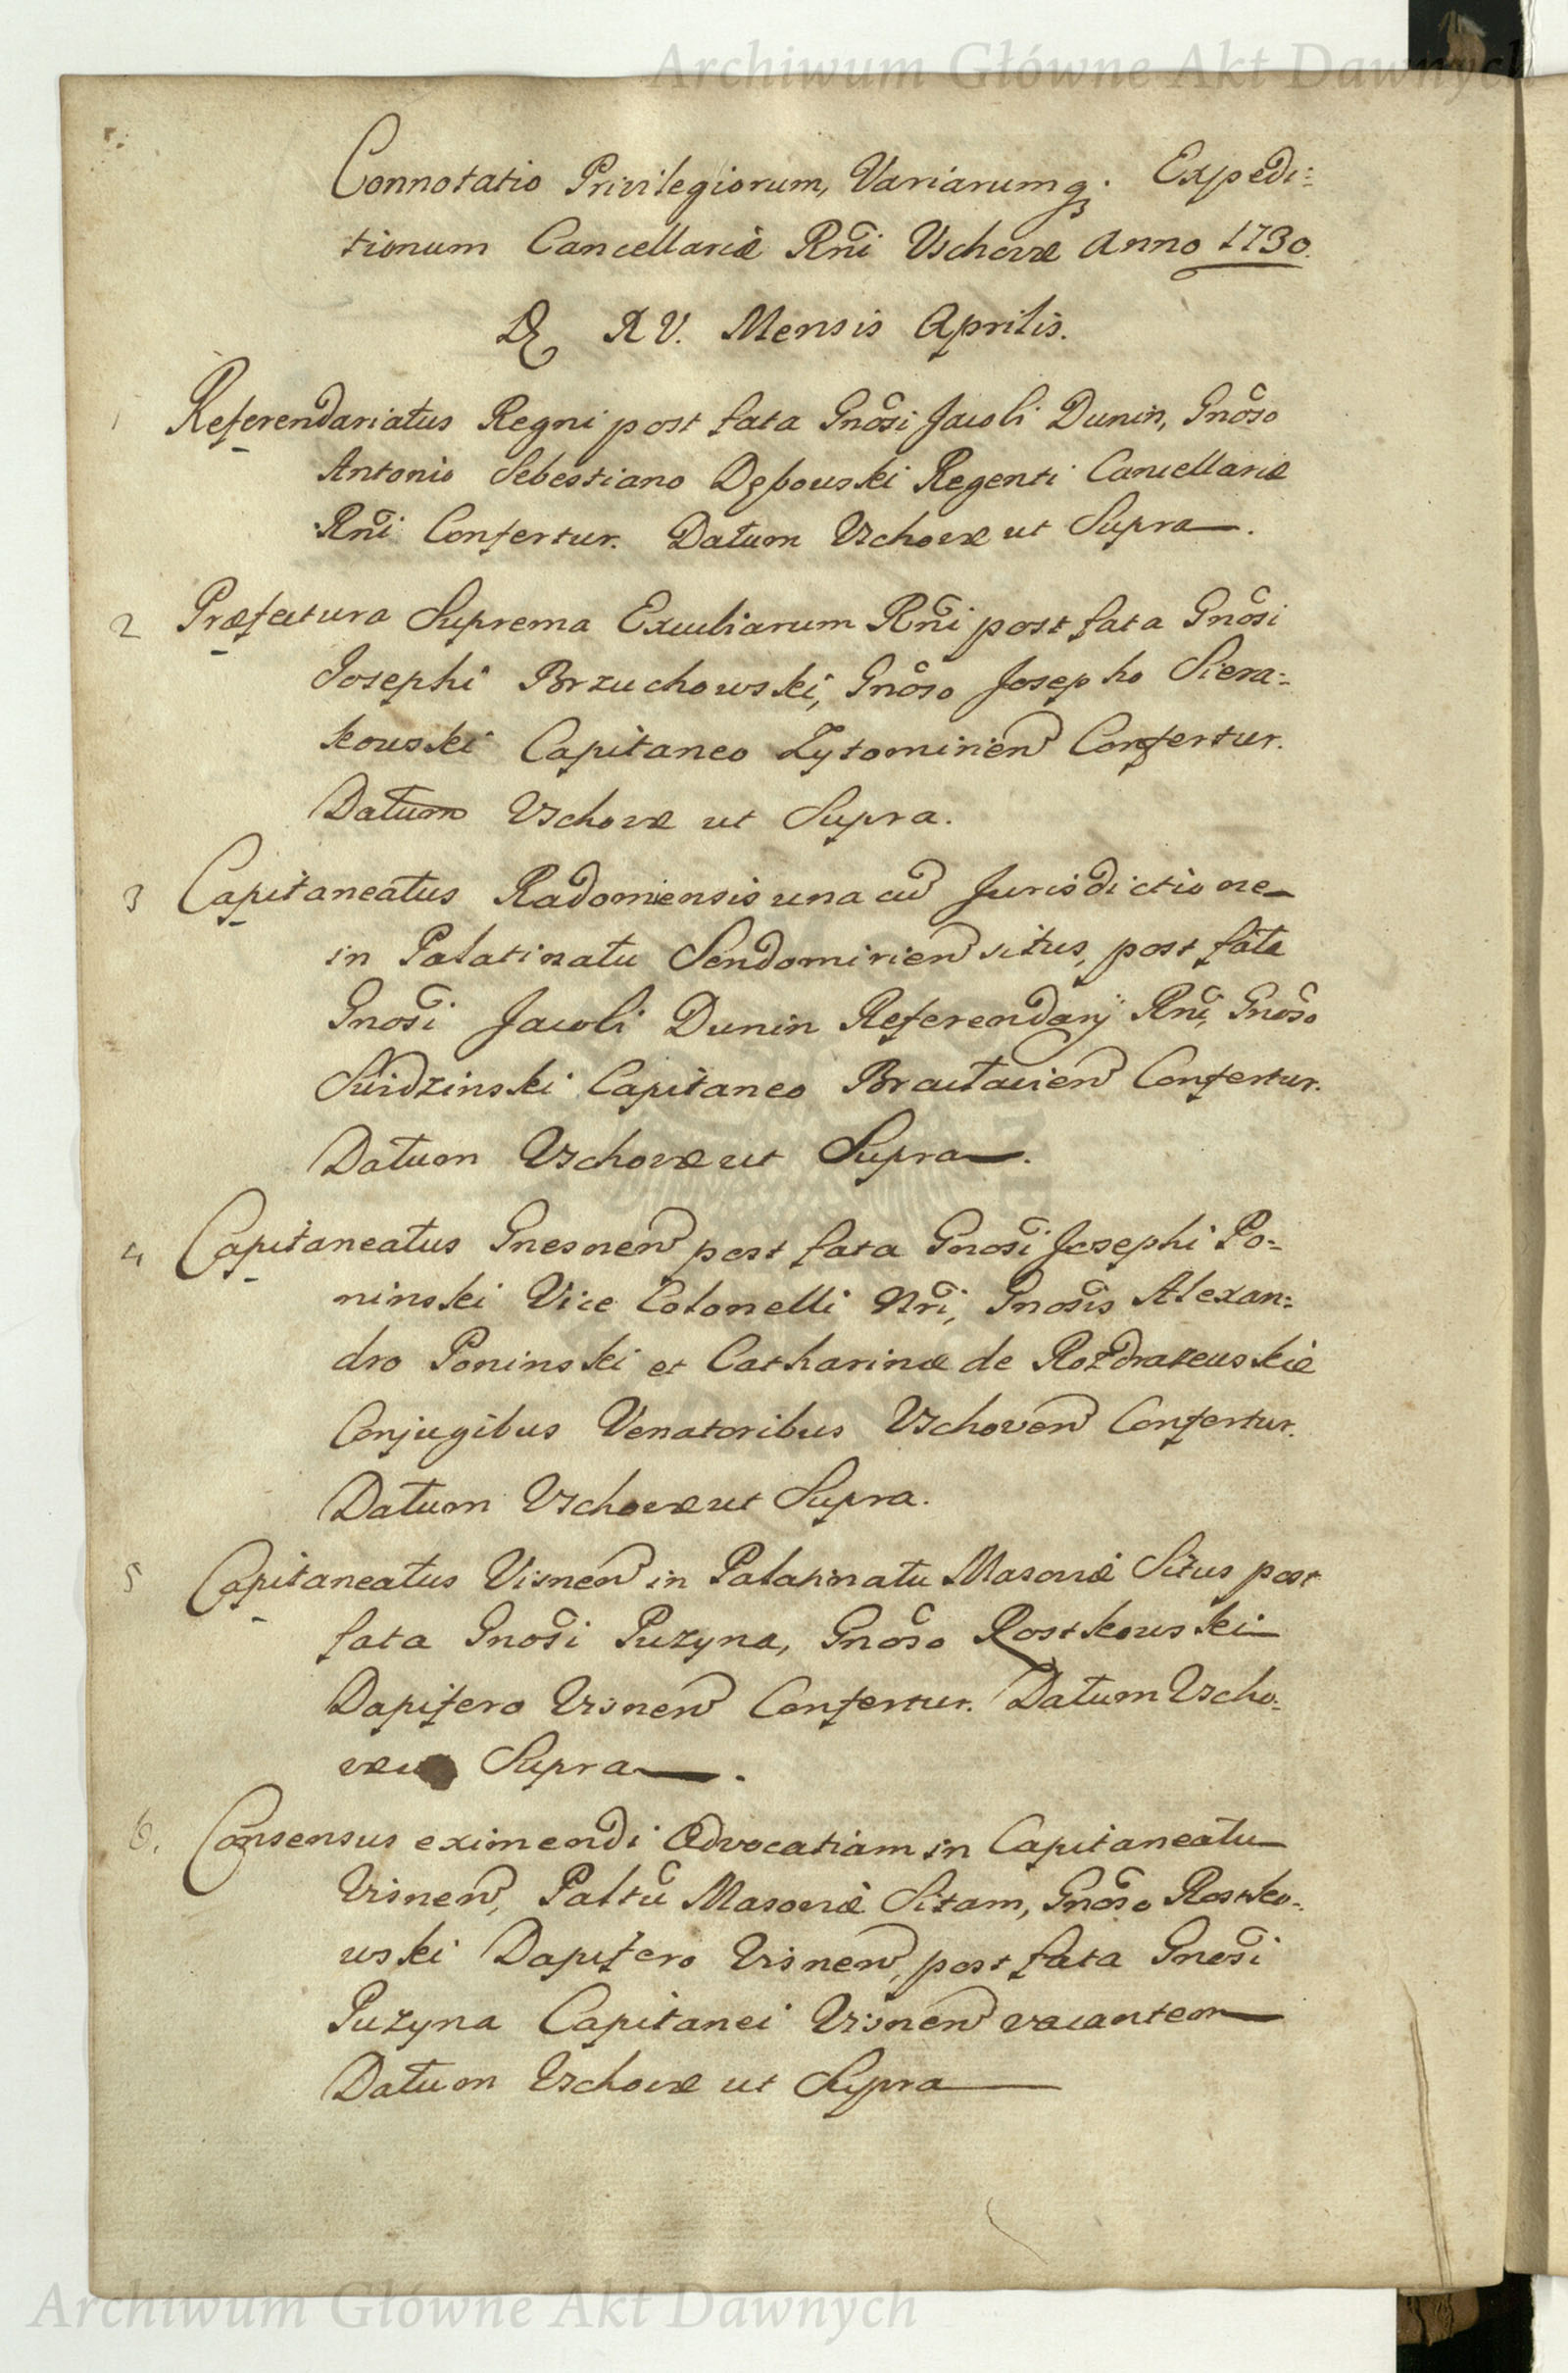 Archiwum Główne Akt Dawnych
Connotatio Privilegiorum, Variarumq. Expedi:
tionum Cancellariæ Rñi Vschovæ Anno 1730.
D XV. Mensis Aprilis.
1 Referendariatus Regni post fata Gnosi Jacobi Dunin, Gnoso
Antonio Sebestiano Dębowski Regenti Cancellariæ
Rñi Confertur. Datum Vschovæ ut Supra.
2 Præfectura Suprema Excubiarum Rñi post fata Gnosi
Josephi Brzuchowski, Gnoso Josepho Siera:
kowski Capitaneo Zytomirien Confertur.
Datum Vschovæ ut Supra.
3 Capitaneatus Radomiensis una cu Jurisdictione
in Palatinatu Sendomirien situs, post fata
Gnosi Jacobi Dunin Referendarij Rñi, Gnoso
Swidzinski Capitaneo Braclavien Confertur.
Datum Vschovæ ut Supra.
4 Capitaneatus Gnesnen post fata Gnosi Josephi Po:
ninski Vice Colonelli Nri, Gnosis Alexan:
dro Poninski et Catharinæ de Rozdrazewskie
Conjugibus Venatoribus Vschoven Confertur.
Datum Vschovæ ut Supra.
5 Capitaneatus Visnen in Palatinatu Masoviæ Situs post
fata Gnosi Puzyna, Gnoso Rostkowski
Dapifero Visnen Confertur. Datum Vscho:
væ Supra.
6. Consensus eximendi Advocatiam in Capitaneatu
Visnen, Paltu Masoviæ Sitam, Gnoso Rostko:
wski Dapifero Visnen, post fata Gnosi
Puzyna Capitanei Visnen vacantem
Datum Vschovæ ut Supra
Archiwum Główne Akt Dawnych